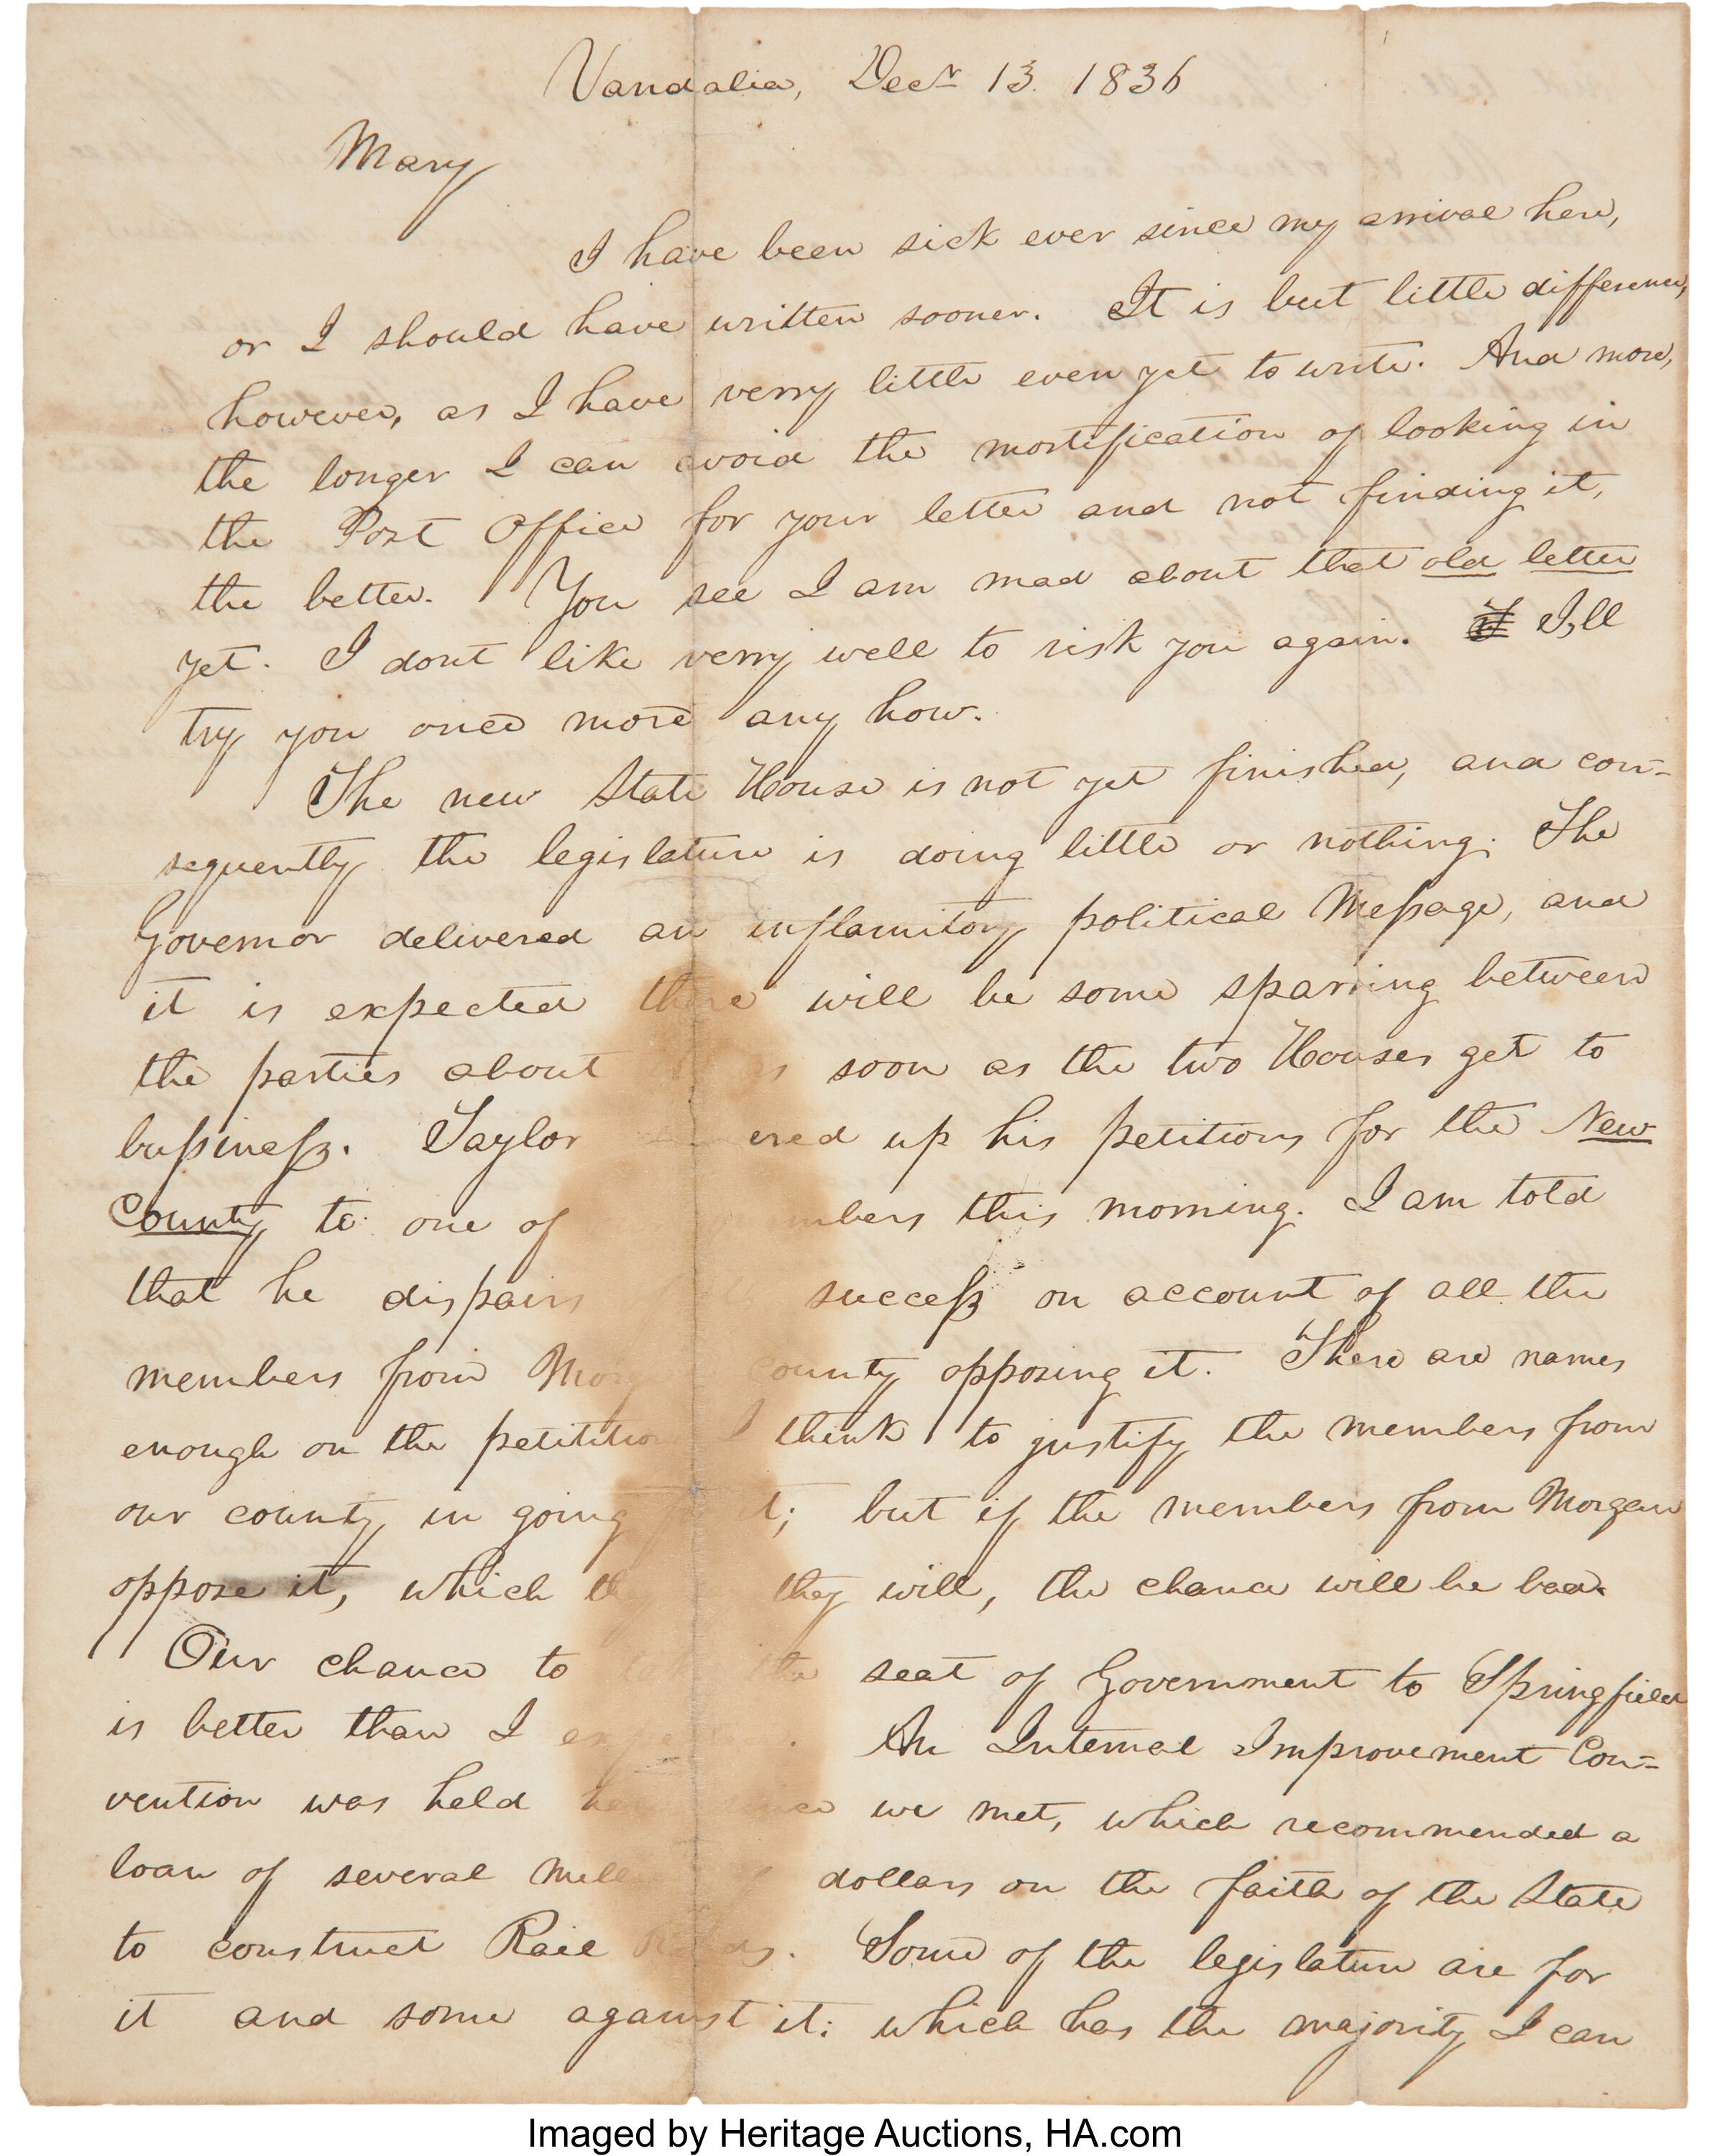 Vandalia, Decr 13. 1836
Mary
I have been sick ever since my arrival here,
or I should have written sooner. It is but little difference,
however, as I have verry little even yet to write. And more,
the longer I can avoid the mortification of looking in
the Post Office for your letter and not finding it,
the better. You see I am mad about that old letter
yet. I dont like verry well to risk you again. I'll
try you once more any how.
The new State House is not yet finished, and con-
sequently the legislature is doing little or nothing. The
Governor delivered an inflamitory political Message, and
it is expected there will be some sparring between
the parties about as soon as the two Houses get to
bussiness. Taylor up his petitions for the New
County to one of this morning. I am told
that he dispairs success on account of all the
members from county opposing it. There are names
enough on the petitition I think to justify the members from
our county in going but if the members from Morgan
oppose it, which they will, the chance will be bad.
Our chance to the seat of Government to Springfield
is better than I An Internal Improvement Con-
vention was held we met, which recommended a
loan of several dollars on the faith of the State
to construct Rail Roads. Some of the legislature are for
it and some against it; which has the majority I can
Imaged by Heritage Auctions, HA.com